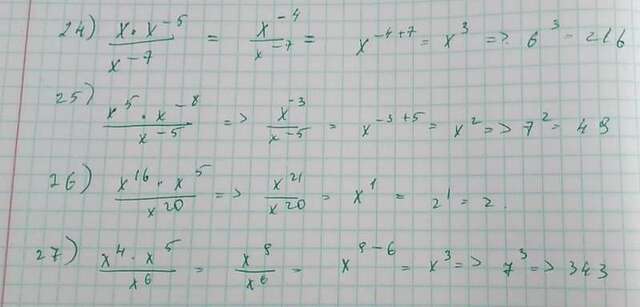 24) x · x⁻⁵ / x⁻⁷ = x⁻⁴ / x⁻⁷ = x⁻⁴⁺⁷ = x³ => 6³ = 216
25) x⁵ · x⁻⁸ / x⁻⁵ => x⁻³ / x⁻⁵ = x⁻³⁺⁵ = x² => 7² = 49
26) x¹⁶ · x⁵ / x²⁰ => x²¹ / x²⁰ = x¹ = 2¹ = 2.
27) x⁴ · x⁵ / x⁶ = x⁹ / x⁶ = x⁹⁻⁶ = x³ => 7³ => 343